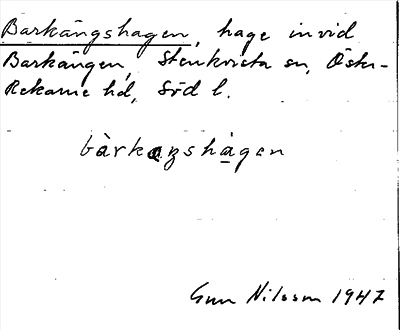 Barkängshagen, hage invid
Barkängen, Stenkvista sn, Öster-
Rekarne hd, Söd l.
bàrkaŋshàgan
Gun Nilsson 1947